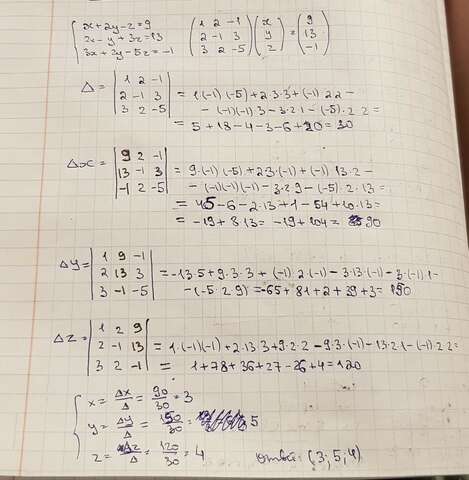 x+2y-z=9
2x-y+3z=13
3x+2y-5z=-1
(1 2 -1) (x) = (9)
(2 -1 3) (y) = (13)
(3 2 -5) (z) = (-1)
Δ = |1 2 -1|
|2 -1 3| = 1·(-1)·(-5)+2·3·3+(-1)·2·2-
|3 2 -5| -(-1)(-1)3-3·2·1-(-5)·2·2=
= 5+18-4-3-6+20=30
Δx = |9 2 -1|
|13 -1 3| = 9·(-1)(-5)+2·3·(-1)+(-1)·13·2-
|-1 2 -5| -(-1)(-1)(-1)-3·2·9-(-5)·2·13=
= 45-6-2·13+1-54+10·13=
= -19+8·13=-19+104=90
Δy = |1 9 -1|
|2 13 3| = -13·5+9·3·3+(-1)·2(-1)-3·13·(-1)-3·(-1)·1-
|3 -1 -5| -(-5·2·9)=-65+81+2+39+3=150
Δz = |1 2 9|
|2 -1 13| = 1·(-1)(-1)+2·13·3+9·2·2-9·3·(-1)-13·2·1-(-1)·2·2=
|3 2 -1| = 1+78+36+27-26+4=120
x = Δx/Δ = 90/30 = 3
y = Δy/Δ = 150/30 = 5
z = Δz/Δ = 120/30 = 4
ответ: (3; 5; 4)